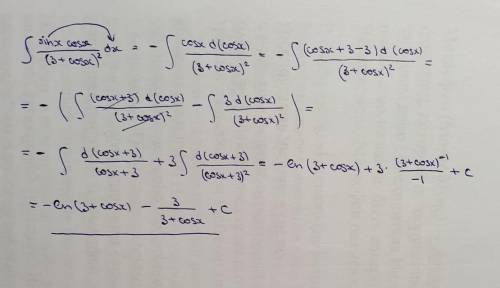 ∫ sinx cosx / (3+cosx)² dx = - ∫ cosx d(cosx) / (3+cosx)² = - ∫ (cosx+3-3) d(cosx) / (3+cosx)² =
= - ( ∫ (cosx+3) d(cosx) / (3+cosx)² - ∫ 3 d(cosx) / (3+cosx)² ) =
= - ∫ d(cosx+3) / cosx+3 + 3 ∫ d(cosx+3) / (cosx+3)² = - ln(3+cosx) + 3 · (3+cosx)⁻¹ / -1 + c
= -ln(3+cosx) - 3 / 3+cosx + c